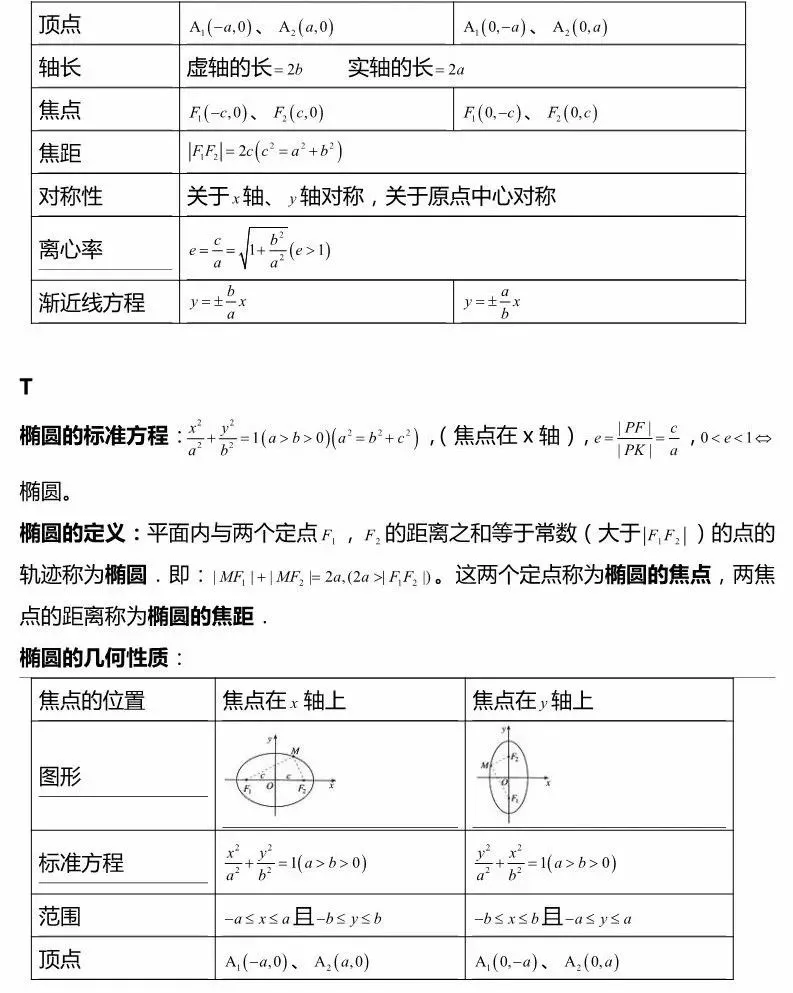 顶点 A₁(−a,0)、 A₂(a,0) A₁(0,−a)、 A₂(0,a)
轴长 虚轴的长=2b 实轴的长=2a
焦点 F₁(−c,0)、 F₂(c,0) F₁(0,−c)、 F₂(0,c)
焦距 |F₁F₂|=2c(c²=a²+b²)
对称性 关于x轴、y轴对称，关于原点中心对称
离心率 e=c/a=√(1+b²/a²)(e>1)
渐近线方程 y=±b/a x y=±a/b x
T
椭圆的标准方程：x²/a²+y²/b²=1(a>b>0)(a²=b²+c²)，（焦点在x轴），e=|PF|/|PK|=c/a，0<e<1⇔
椭圆。
椭圆的定义：平面内与两个定点F₁，F₂的距离之和等于常数（大于|F₁F₂|）的点的
轨迹称为椭圆．即：|MF₁|+|MF₂|=2a,(2a>|F₁F₂|)。这两个定点称为椭圆的焦点，两焦
点的距离称为椭圆的焦距．
椭圆的几何性质：
焦点的位置 焦点在x轴上 焦点在y轴上
图形
y M c c F₁ O F₂ x
y F₂ M O x F₁
标准方程 x²/a²+y²/b²=1(a>b>0) y²/a²+x²/b²=1(a>b>0)
范围 −a≤x≤a且−b≤y≤b −b≤x≤b且−a≤y≤a
顶点 A₁(−a,0)、 A₂(a,0) A₁(0,−a)、 A₂(0,a)